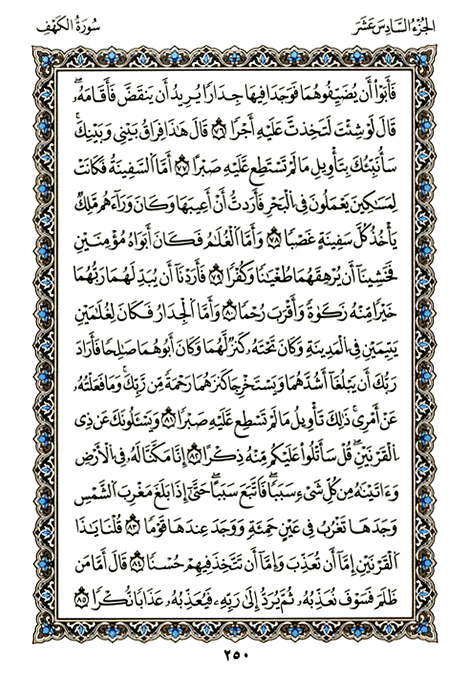 الجُزءُ السَّادِسَ عَشَرَ
سُورَةُ الكَهْفِ
فَأَبَوْا۟ أَن يُضَيِّفُوهُمَا فَوَجَدَا فِيهَا جِدَارًا يُرِيدُ أَن يَنقَضَّ فَأَقَامَهُۥ
قَالَ لَوْ شِئْتَ لَتَّخَذتَّ عَلَيْهِ أَجْرًا ٧٦ قَالَ هَٰذَا فِرَاقُ بَيْنِى وَبَيْنِكَ
سَأُنَبِّئُكَ بِتَأْوِيلِ مَا لَمْ تَسْتَطِع عَّلَيْهِ صَبْرًا ٧٧ أَمَّا السَّفِينَةُ فَكَانَتْ
لِمَسَٰكِينَ يَعْمَلُونَ فِى الْبَحْرِ فَأَرَدتُّ أَنْ أَعِيبَهَا وَكَانَ وَرَآءَهُم مَّلِكٌ
يَأْخُذُ كُلَّ سَفِينَةٍ غَصْبًا ٧٨ وَأَمَّا الْغُلَٰمُ فَكَانَ أَبَوَاهُ مُؤْمِنَيْنِ
فَخَشِينَآ أَن يُرْهِقَهُمَا طُغْيَٰنًا وَكُفْرًا ٧٩ فَأَرَدْنَآ أَن يُبَدِّلَهُمَا رَبُّهُمَا
خَيْرًا مِّنْهُ زَكَوٰةً وَأَقْرَبَ رُحْمًا ٨٠ وَأَمَّا الْجِدَارُ فَكَانَ لِغُلَٰمَيْنِ
يَتِيمَيْنِ فِى الْمَدِينَةِ وَكَانَ تَحْتَهُۥ كَنزٌ لَّهُمَا وَكَانَ أَبُوهُمَا صَٰلِحًا فَأَرَادَ
رَبُّكَ أَن يَبْلُغَآ أَشُدَّهُمَا وَيَسْتَخْرِجَا كَنزَهُمَا رَحْمَةً مِّن رَّبِّكَ وَمَا فَعَلْتُهُۥ
عَنْ أَمْرِى ذَٰلِكَ تَأْوِيلُ مَا لَمْ تَسْطِع عَّلَيْهِ صَبْرًا ٨١ وَيَسْـَٔلُونَكَ عَن ذِى
الْقَرْنَيْنِ قُلْ سَأَتْلُوا۟ عَلَيْكُم مِّنْهُ ذِكْرًا ٨٢ إِنَّا مَكَّنَّا لَهُۥ فِى الْأَرْضِ
وَءَاتَيْنَٰهُ مِن كُلِّ شَىْءٍ سَبَبًا فَاتَّبَعَ سَبَبًا حَتَّىٰٓ إِذَا بَلَغَ مَغْرِبَ الشَّمْسِ
وَجَدَهَا تَغْرُبُ فِى عَيْنٍ حَمِئَةٍ وَوَجَدَ عِندَهَا قَوْمًا ٨٣ قُلْنَا يَٰذَا
الْقَرْنَيْنِ إِمَّآ أَن تُعَذِّبَ وَإِمَّآ أَن تَتَّخِذَ فِيهِمْ حُسْنًا ٨٤ قَالَ أَمَّا مَن
ظَلَمَ فَسَوْفَ نُعَذِّبُهُۥ ثُمَّ يُرَدُّ إِلَىٰ رَبِّهِۦ فَيُعَذِّبُهُۥ عَذَابًا نُّكْرًا ٨٥
٢٥٠